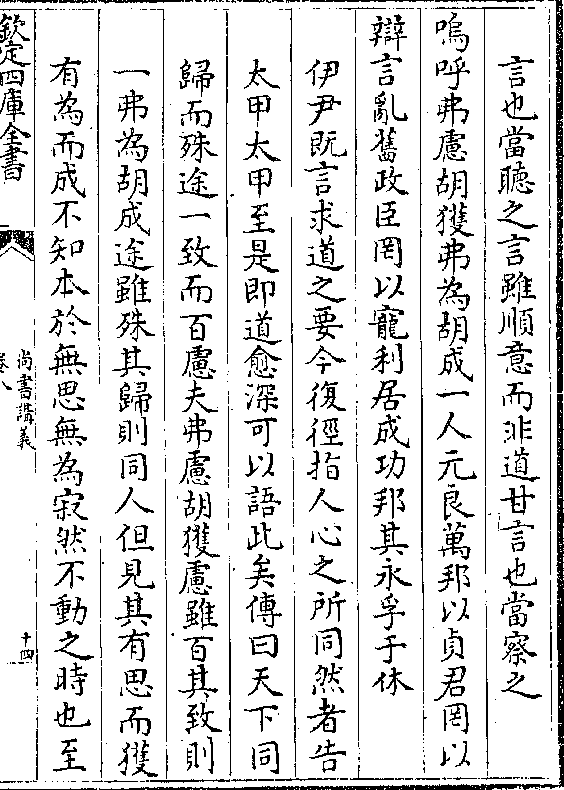 言也當聽之言雖順意而非道甘言也當察之
嗚呼弗慮胡獲弗為胡成一人元良萬邦以貞君罔以
辯言亂舊政臣罔以寵利居成功邦其永孚于休
伊尹既言求道之要今復徑指人心之所同然者告
太甲太甲至是即道愈深可以語此矣傳曰天下同
歸而殊途一致而百慮夫弗慮胡獲慮雖百其致則
一弗為胡成途雖殊其歸則同人但見其有思而獲
有為而成不知本於無思無為寂然不動之時也至
欽定四庫全書
尚書講義
卷八
十四